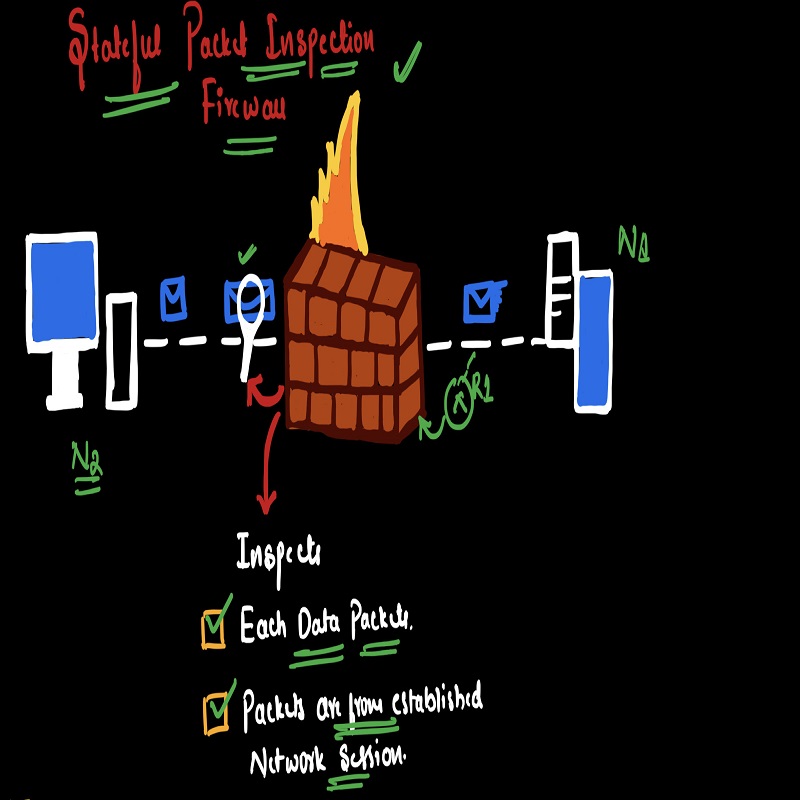 Stateful Packet Inspection
Firewall
N1
R1
N2
Inspects
Each Data Packets.
Packets are from established
Network Session.